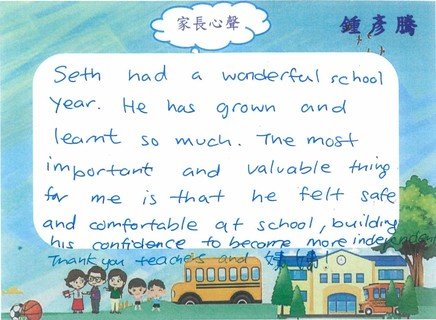 家長心聲
鍾彥騰
Seth had a wonderful school
year. He has grown and
learnt so much. The most
important and valuable thing
for me is that he felt safe
and comfortable at school, building
his confidence to become more independent
Thank you teachers and 姨姨!